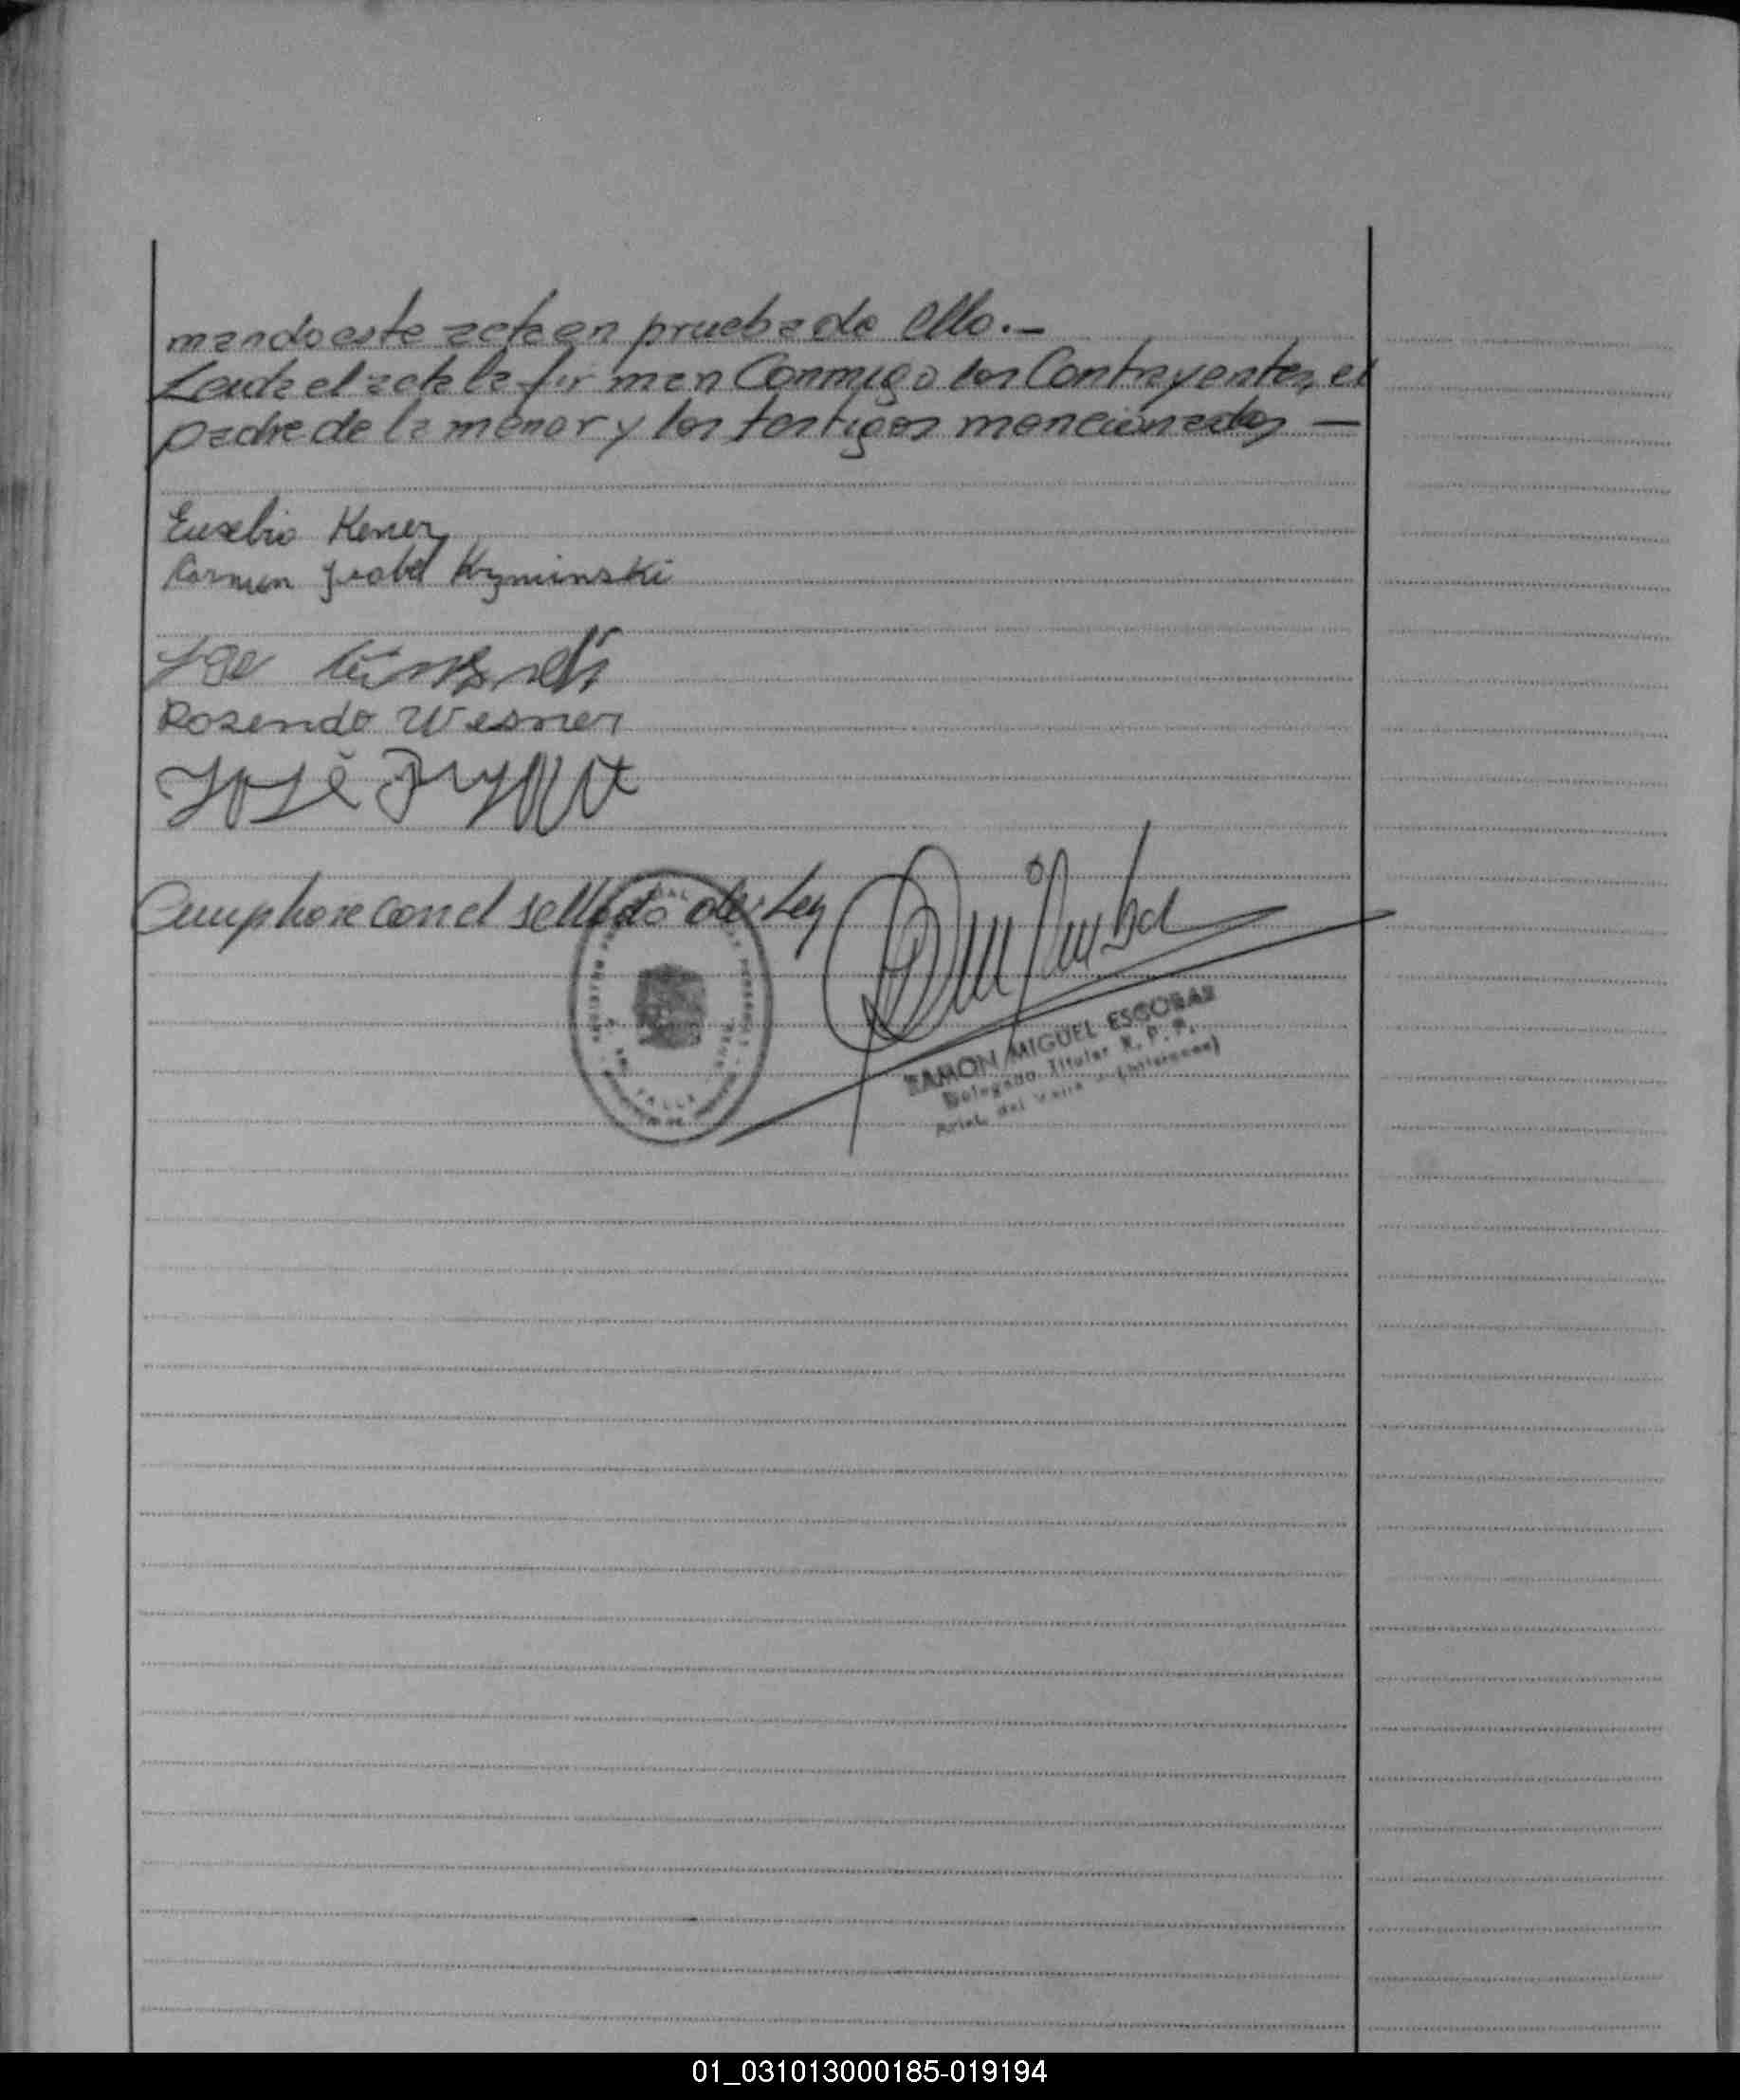 mando este acta en prueba de ello.-
Leida el acta la firman Conmigo los Contrayentes, el
padre de la menor y los testigos mencionados —
Eusebio Kener
Carmen Isabel Kyminski
Rosendo Wesner
José
Cumplase con el sellado de Ley
RAMON MIGUEL ESCOBAR
Delegado Titular R. P. P.
Arist. del Valle - (Misiones)
01_031013000185-019194